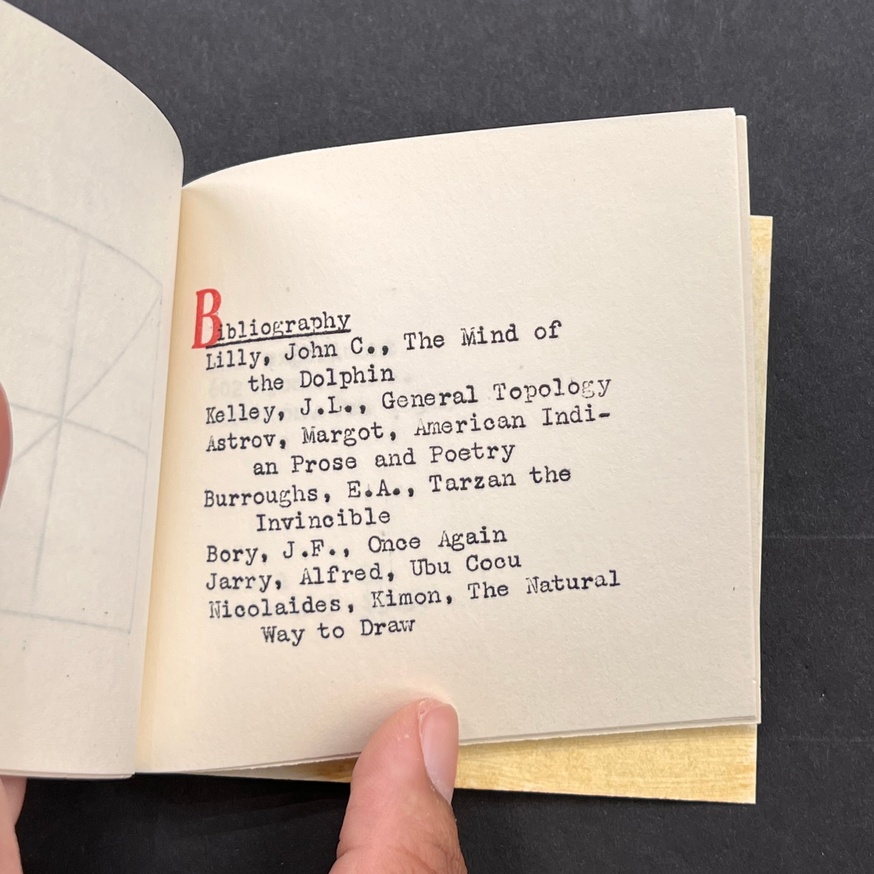 Bibliography
Lilly, John C., The Mind of
the Dolphin
Kelley, J.L., General Topology
Astrov, Margot, American Indi-
an Prose and Poetry
Burroughs, E.A., Tarzan the
Invincible
Bory, J.F., Once Again
Jarry, Alfred, Ubu Cocu
Nicolaides, Kimon, The Natural
Way to Draw